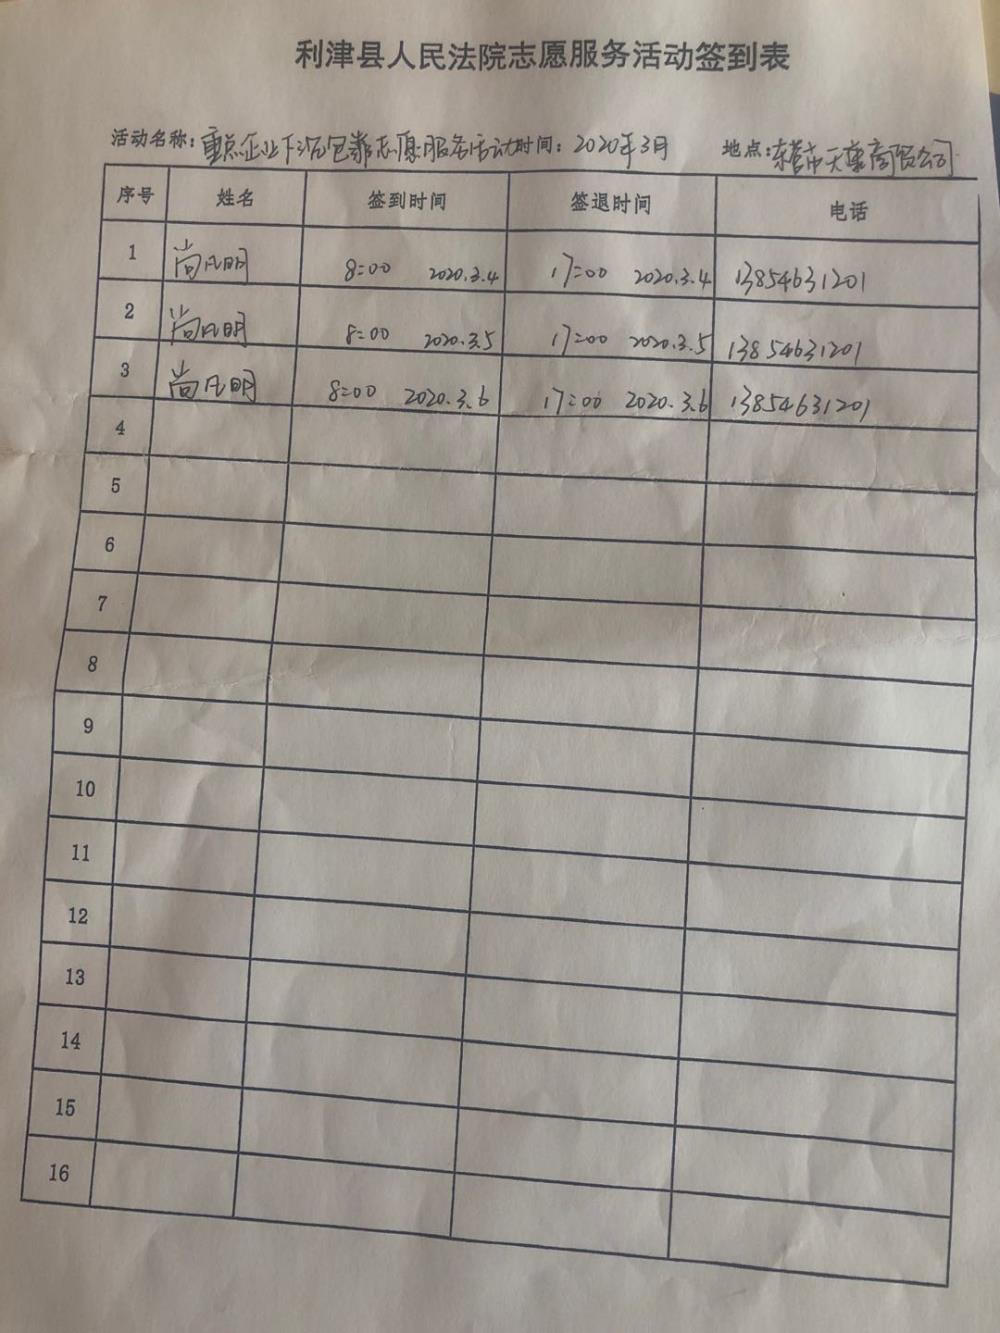 利津县人民法院志愿服务活动签到表
活动名称：重点企业下沉包靠志愿服务活动 时间：2020年3月 地点：东营市天康商贸公司
序号 姓名 签到时间 签退时间 电话
1 尚凡明 8:00 2020.3.4 17:00 2020.3.4 13854631201
2 尚凡明 8:00 2020.3.5 17:00 2020.3.5 13854631201
3 尚凡明 8:00 2020.3.6 17:00 2020.3.6 13854631201
4
5
6
7
8
9
10
11
12
13
14
15
16